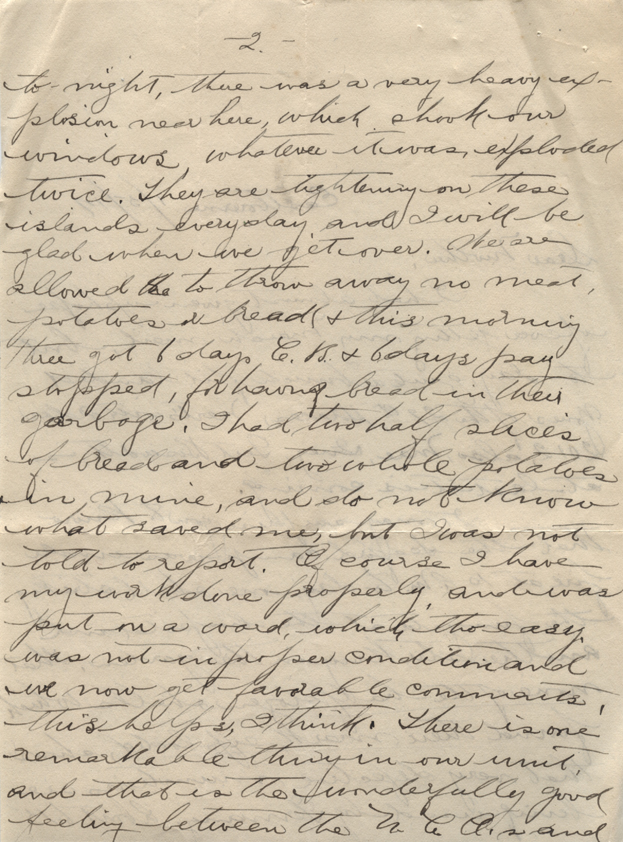 -2.-
to-night, there was a very heavy ex-
plosion near here, which shook our
windows, whatever it was, exploded
twice. They are tightening on these
islands everyday and I will be
glad when we get over. We are
allowed to throw away no meat,
potatoes or bread & this morning
three got 6 days C. B. & 6 days pay
stopped, for having bread in their
garbage. I had two half slices
of bread and two whole potatoes
in mine, and do not know
what saved me, but I was not
told to report. Of course I have
my work done properly, and was
put on a ward, which, tho easy,
was not in proper condition and
we now get favorable comments,
this helps, I think. There is one
remarkable thing in our unit,
and that is the wonderfully good
feeling between the N.C.O.s and